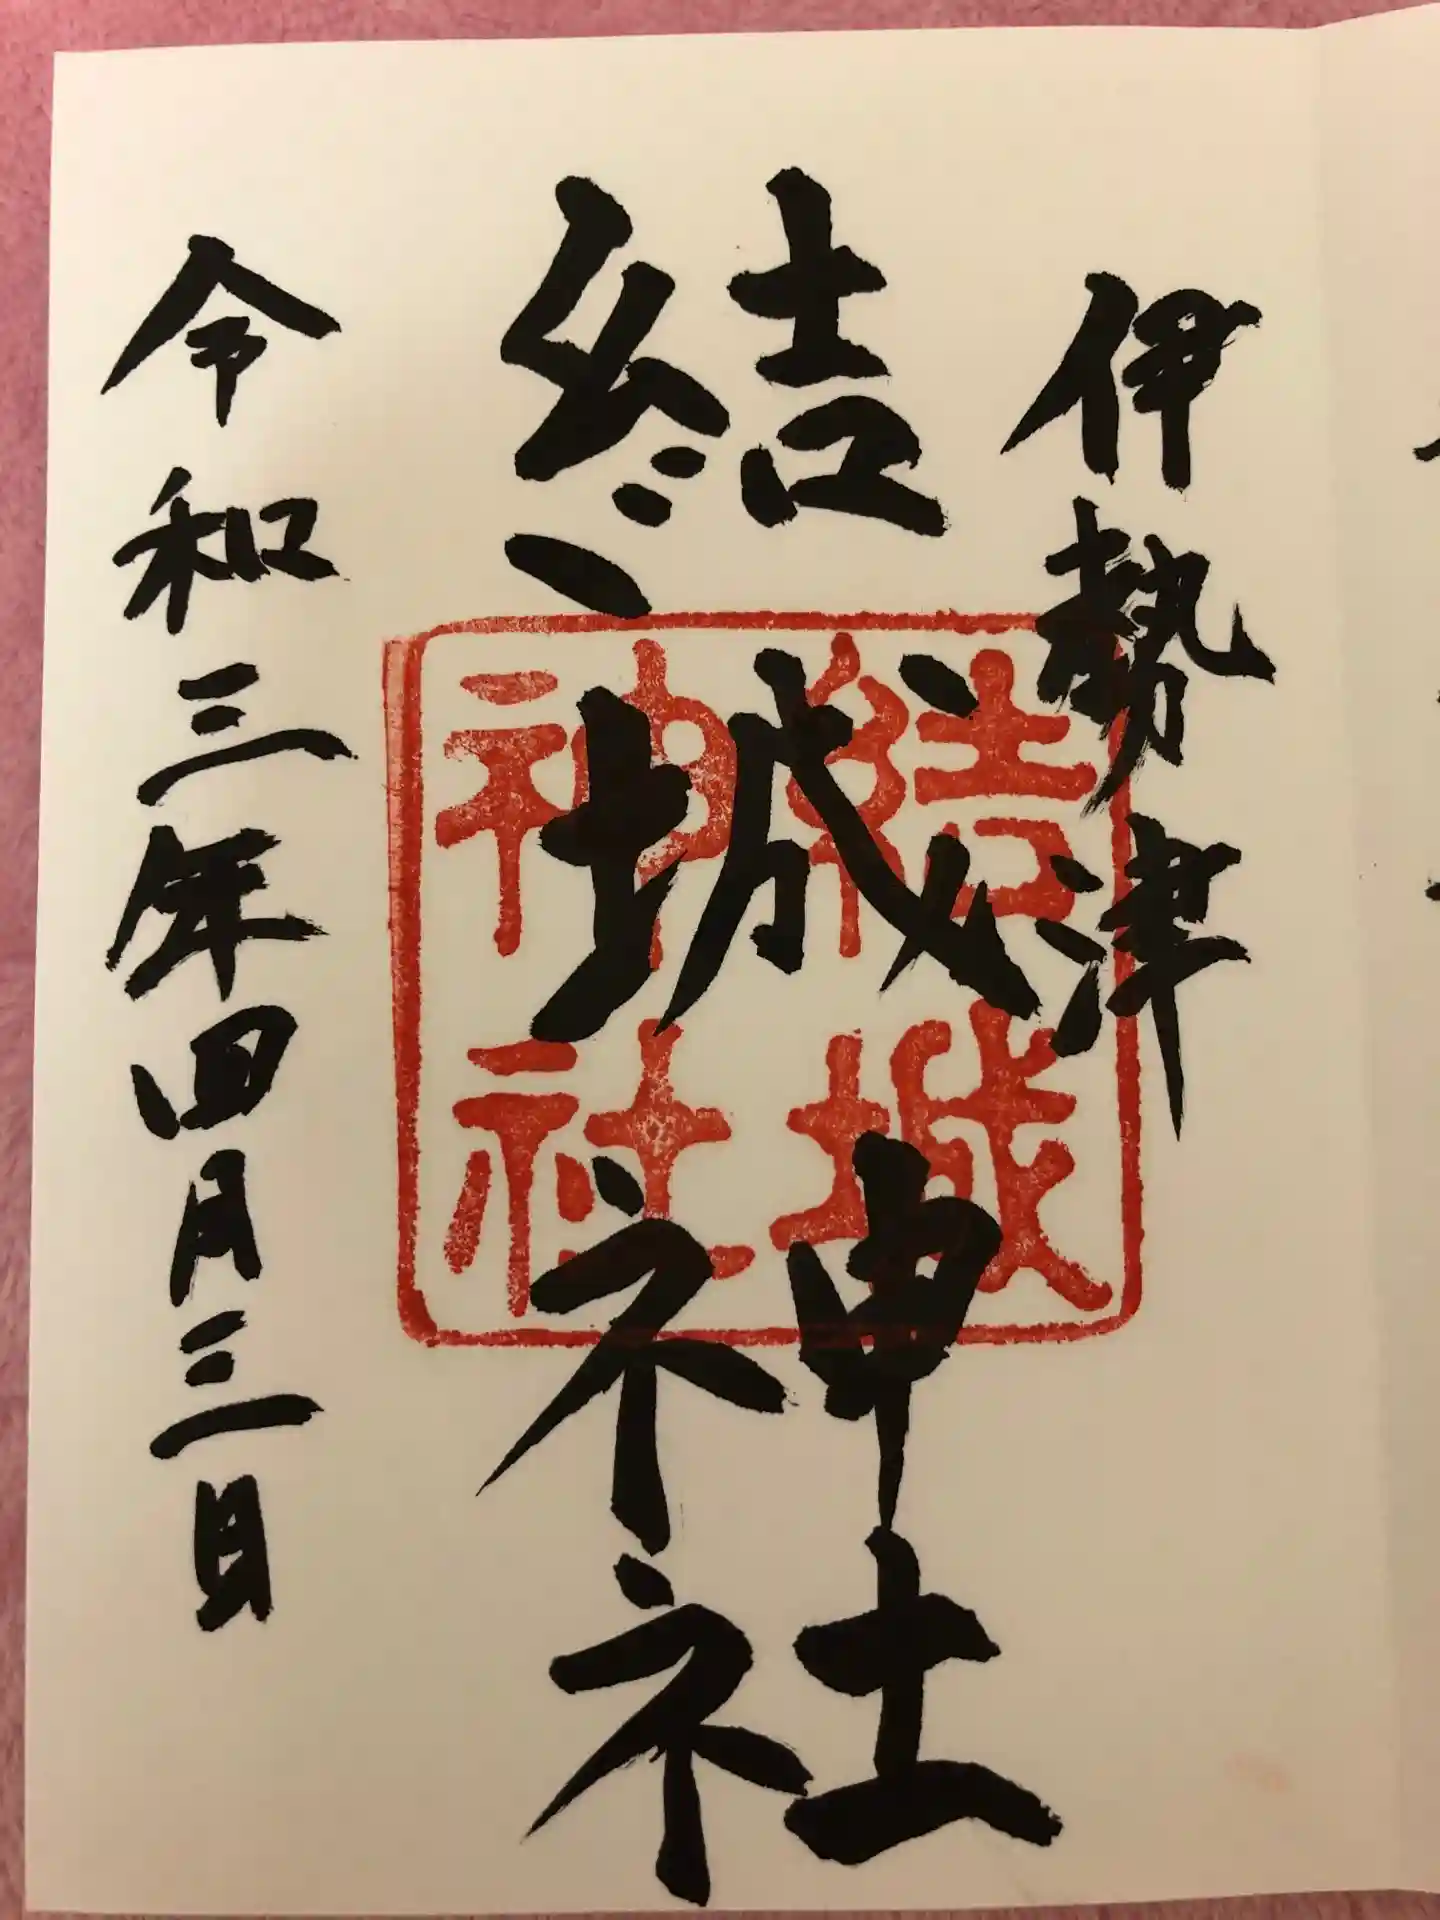 伊勢津
結城神社
結城神社
令和三年四月三日